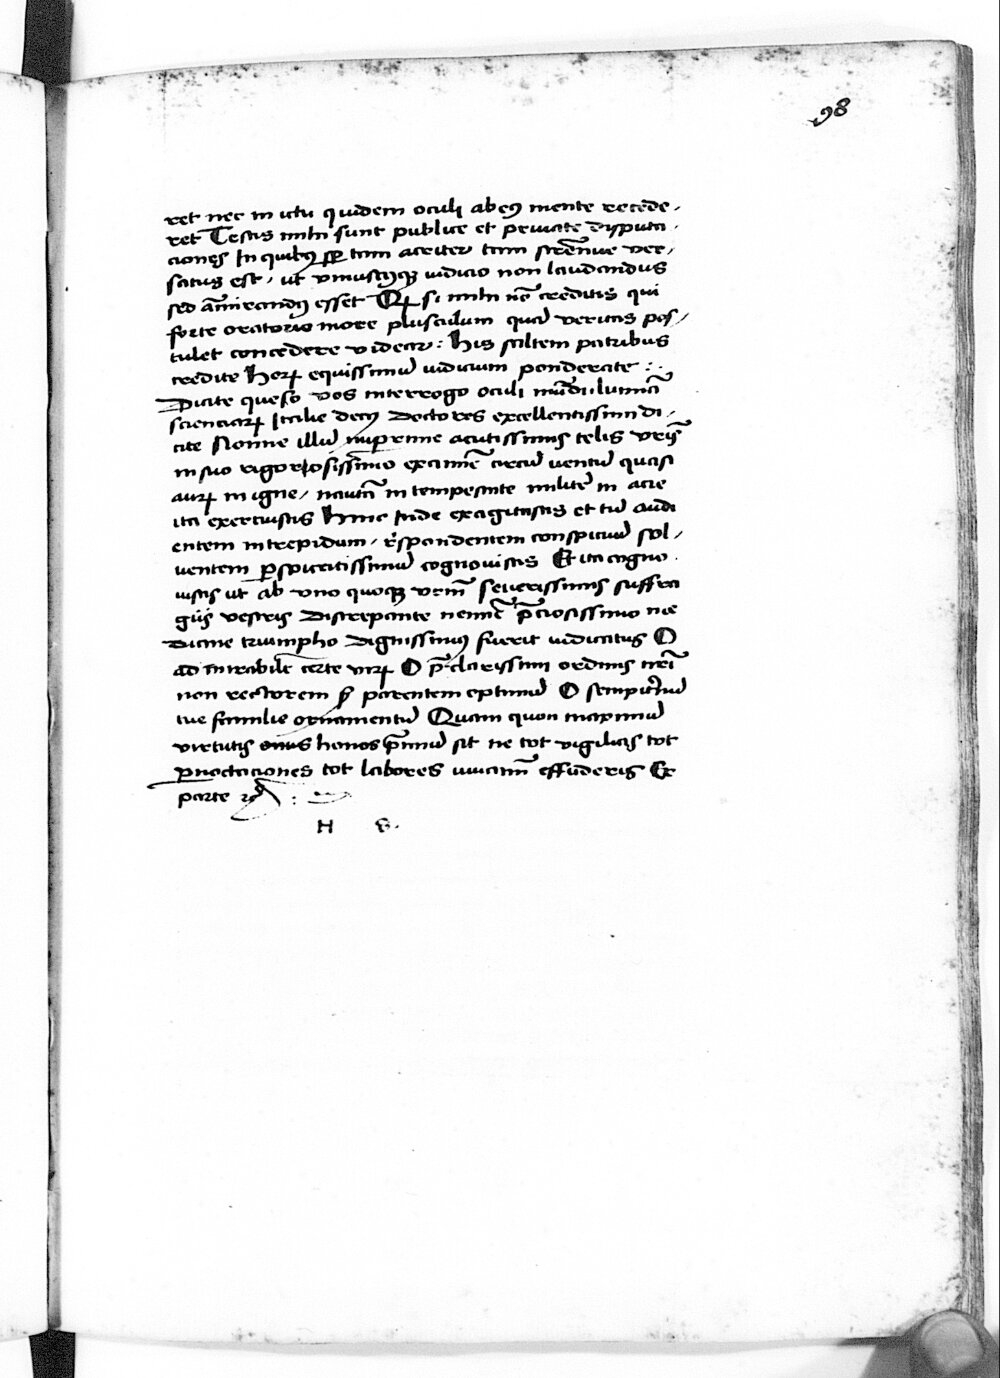 98
ret nec in ictu quidem oculi ab eius mente recede-
ret Testes mihi sunt publice et priuate disputa-
ciones In quibus semper tam acriter tam strennue ver-
satus est, ut vniuscuiusque iudicio non laudandus
sed admirandus esset Quod si mihi non creditis qui
forte oratorio more plusculum quam veritas pos-
tulet concedere videar: his saltem patribus
credite Horum equissimum iudicium ponderate :
Dicite queso vos interrogo oculi mundi lumina
scienciarum Italie decus doctores excellentissimi di-
cite Nonne illum nuperrime acutissimis telis vestris
in suo rigorosissimo examine circumuentum quasi
aurum in igne, nautam in tempestate militem in acie
ita exercuistis Hinc inde exagitastis et tum audi
entem intrepidum, respondentem conspicuum sol-
uentem perspicatissimum cognouistis Et ita cogno-
uistis ut ab vno quoque vestrum seuerissimis suffra
giis vestris discrepante nemine preciosissimo
triumpho dignissimus fuerit iudicatus O
admirabilem certe virum O preclarissimi ordinis nostri
non rectorem sed parentem optimum O sempiternum
tue familie ornamentum Quam quom maximum
virtutis onus honos premium sit ne tot vigilias tot
pernoctaciones tot labores effuderis Ex
parte
H